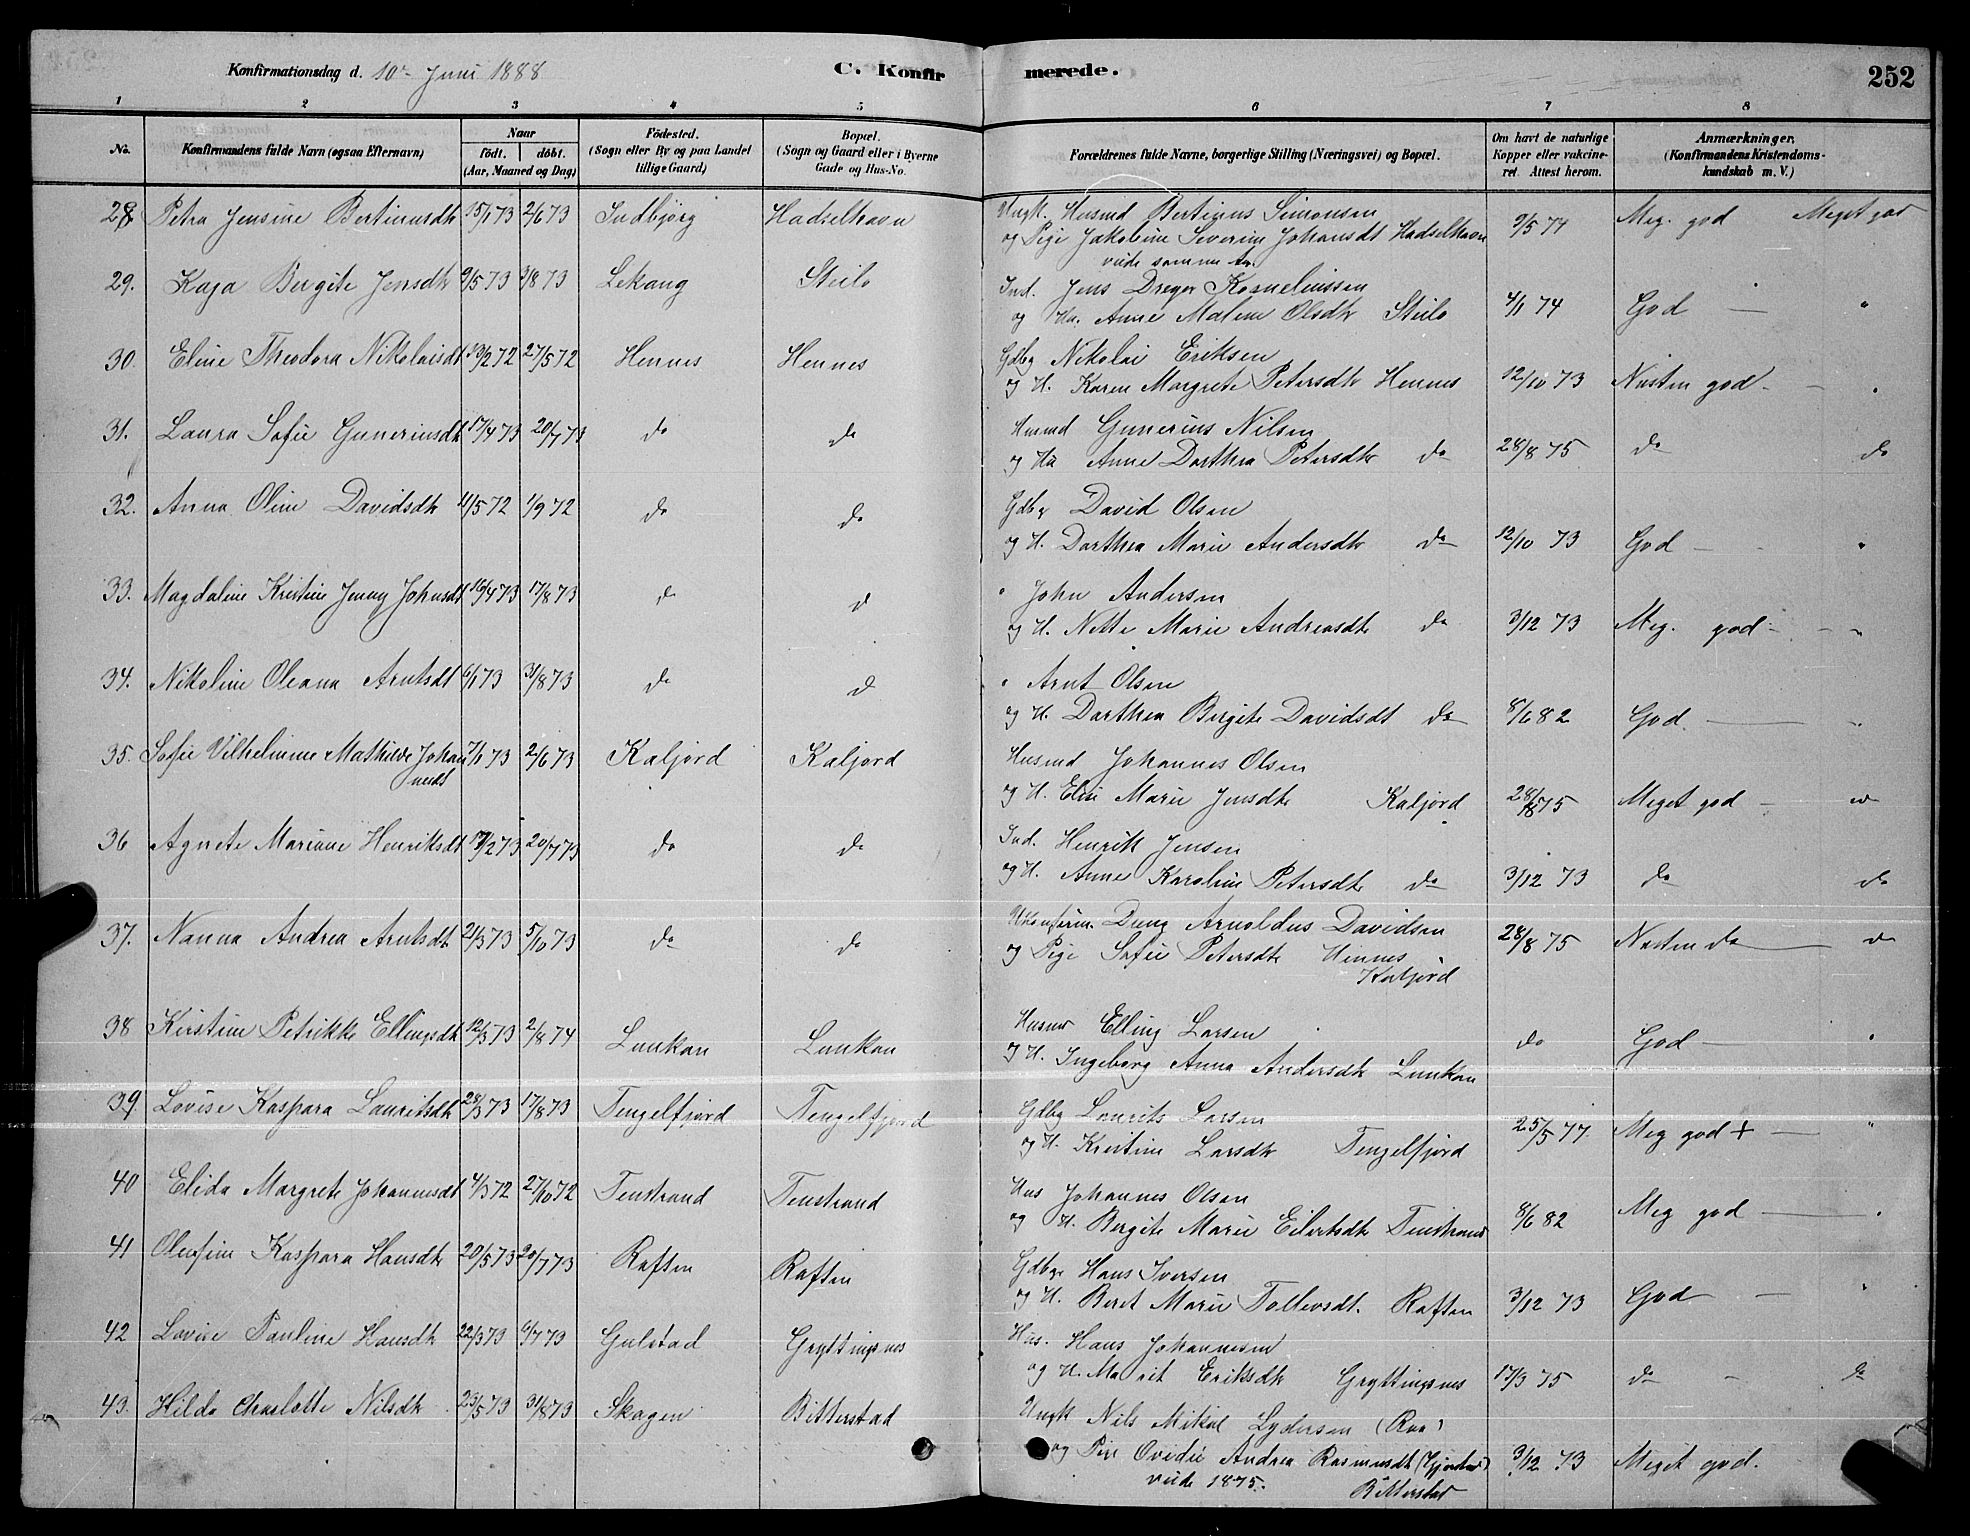 Konfirmationsdag d. 10de Juni 1888
C. Konfirmerede.
252
1 2 3 4 5 6 7 8
No.
Konfirmandens fulde Navn (ogsaa Efternavn)
Naar
födt. döbt.
(Aar, Maaned og Dag)
Födested.
(Sogn eller By og paa Landet
tillige Gaard)
Bopæl.
(Sogn og Gaard eller i Byerne
Gade og Hus-No.
Forældrenes fulde Navne, borgerlige Stilling (Næringsvei) og Bopæl.
Om havt de naturlige
Kopper eller vakcine-
ret. Attest herom.
Anmærkninger.
(Konfirmandens Kristendoms-
kundskab m. V.)
28 Petra Jensine Bertinusdt 15/1 73 2/6 73 Indbjörg Hadselhavn Ungk. Husmd Bertinus Simonsen 9/5 74 Meg. god Meget god
og Pige Jakobine Severine Johansdt Hadselhavn
viede samme Aar.
29. Kaja Bergite Jensdtr 9/5 73 3/8 73 Lekang Steilo Ind. Jens Dreyer Kornelinssen
og Hu. Anne Malene Olsdtr Steilo 4/1 74 God — "
30. Eline Theodora Nikolaisdt 13/2 72 27/5 72 Hennes Hennes Gdbg Nikolai Eriksen
og H. Karen Margrete Petersdtr Hennes 12/10 73 Næsten god — "
31. Laura Sofie Guneriusdt 17/4 73 20/7 73 do do Husmd Gunerius Nilsen
og Hu Anne Dorthea Petersdtr do 28/8 75 do do
32. Anna Oline Davidsdtr 11/5 72 1/9 72 do do Gdbg David Olsen
og H. Dorthea Marie Andersdtr do 12/10 73 God — "
33. Magdaline Kristine Jenny Johnsdt 16/4 73 17/8 73 do do " John Andersen
og H. Nette Marie Andreasdtr do 3/12 73 Meg. god — "
34. Nikoline Oleana Arntsdt 6/1 73 31/8 73 do do " Arnt Olsen
og H. Dorthea Bergite Davidsdt do 8/6 82 God. — "
35. Sofie Vilhelmine Mathilde Johan 7/1 73 2/6 73 Kaljord Kaljord Husmd Johannes Olsen
nesdt
og H. Elise Marie Jensdtr Kaljord 28/8 75 Meget god —
36 Agnete Mariane Henriksdt 17/2 73 20/7 73 do do Ind. Henrik Jensen
og H. Anne Karoline Petersdtr do 3/12 73 do do
37. Nanna Andrea Arntsdt. 21/3 73 5/10 73 do do Ukonfirm. Dreng Arnoldus Davidsen
og Pige Sofie Petersdtr Hennes 28/8 75 Næsten do — do
Kaljord
38 Kirstine Petrikke Ellingsdtr 12/3 73 2/8 74 Lunkan Lunkan Husmd Elling Larsen
og H. Ingeborg Anna Andersdtr Lunkan do God — "
39 Lovise Kaspara Lauritsdtr 28/3 73 17/8 73 Tengelfjord Tengelfjord Gdbg Laurits Larsen
og H. Kristine Larsdtr Tengelfjord 25/5 77. Meg god + — "
40 Elida Margrete Johannesdt 4/3 72 27/10 72 Tenstrand Tenstrand Hus Johannes Olsen
og H. Bergite Marie Eilertsdtr Tenstrand 8/6 82 Meg god — "
41 Olufine Kaspara Hansdtr 20/5 73 20/7 73 Raften Raften Gdbg Hans Iversen
og H. Beret Marie Tollevsdt. Raften 3/12 73 God — "
42 Lovise Pauline Hansdtr 22/3 73 6/7 73 Gulstad Gryttingsnes Hus. Hans Johannesen
og H. Marit Eriksdtr Gryttingsnes 17/3 75 do — do
43. Hilda Charlotte Nilsdtr 23/5 73 31/8 73 Skagen Bitterstad Ungk Nils Mikal Lydersen (Raa)
og Pige Ovidie Andrea Rasmusdt 3/12 73 Meget god.
viede 1875. Bitterstad